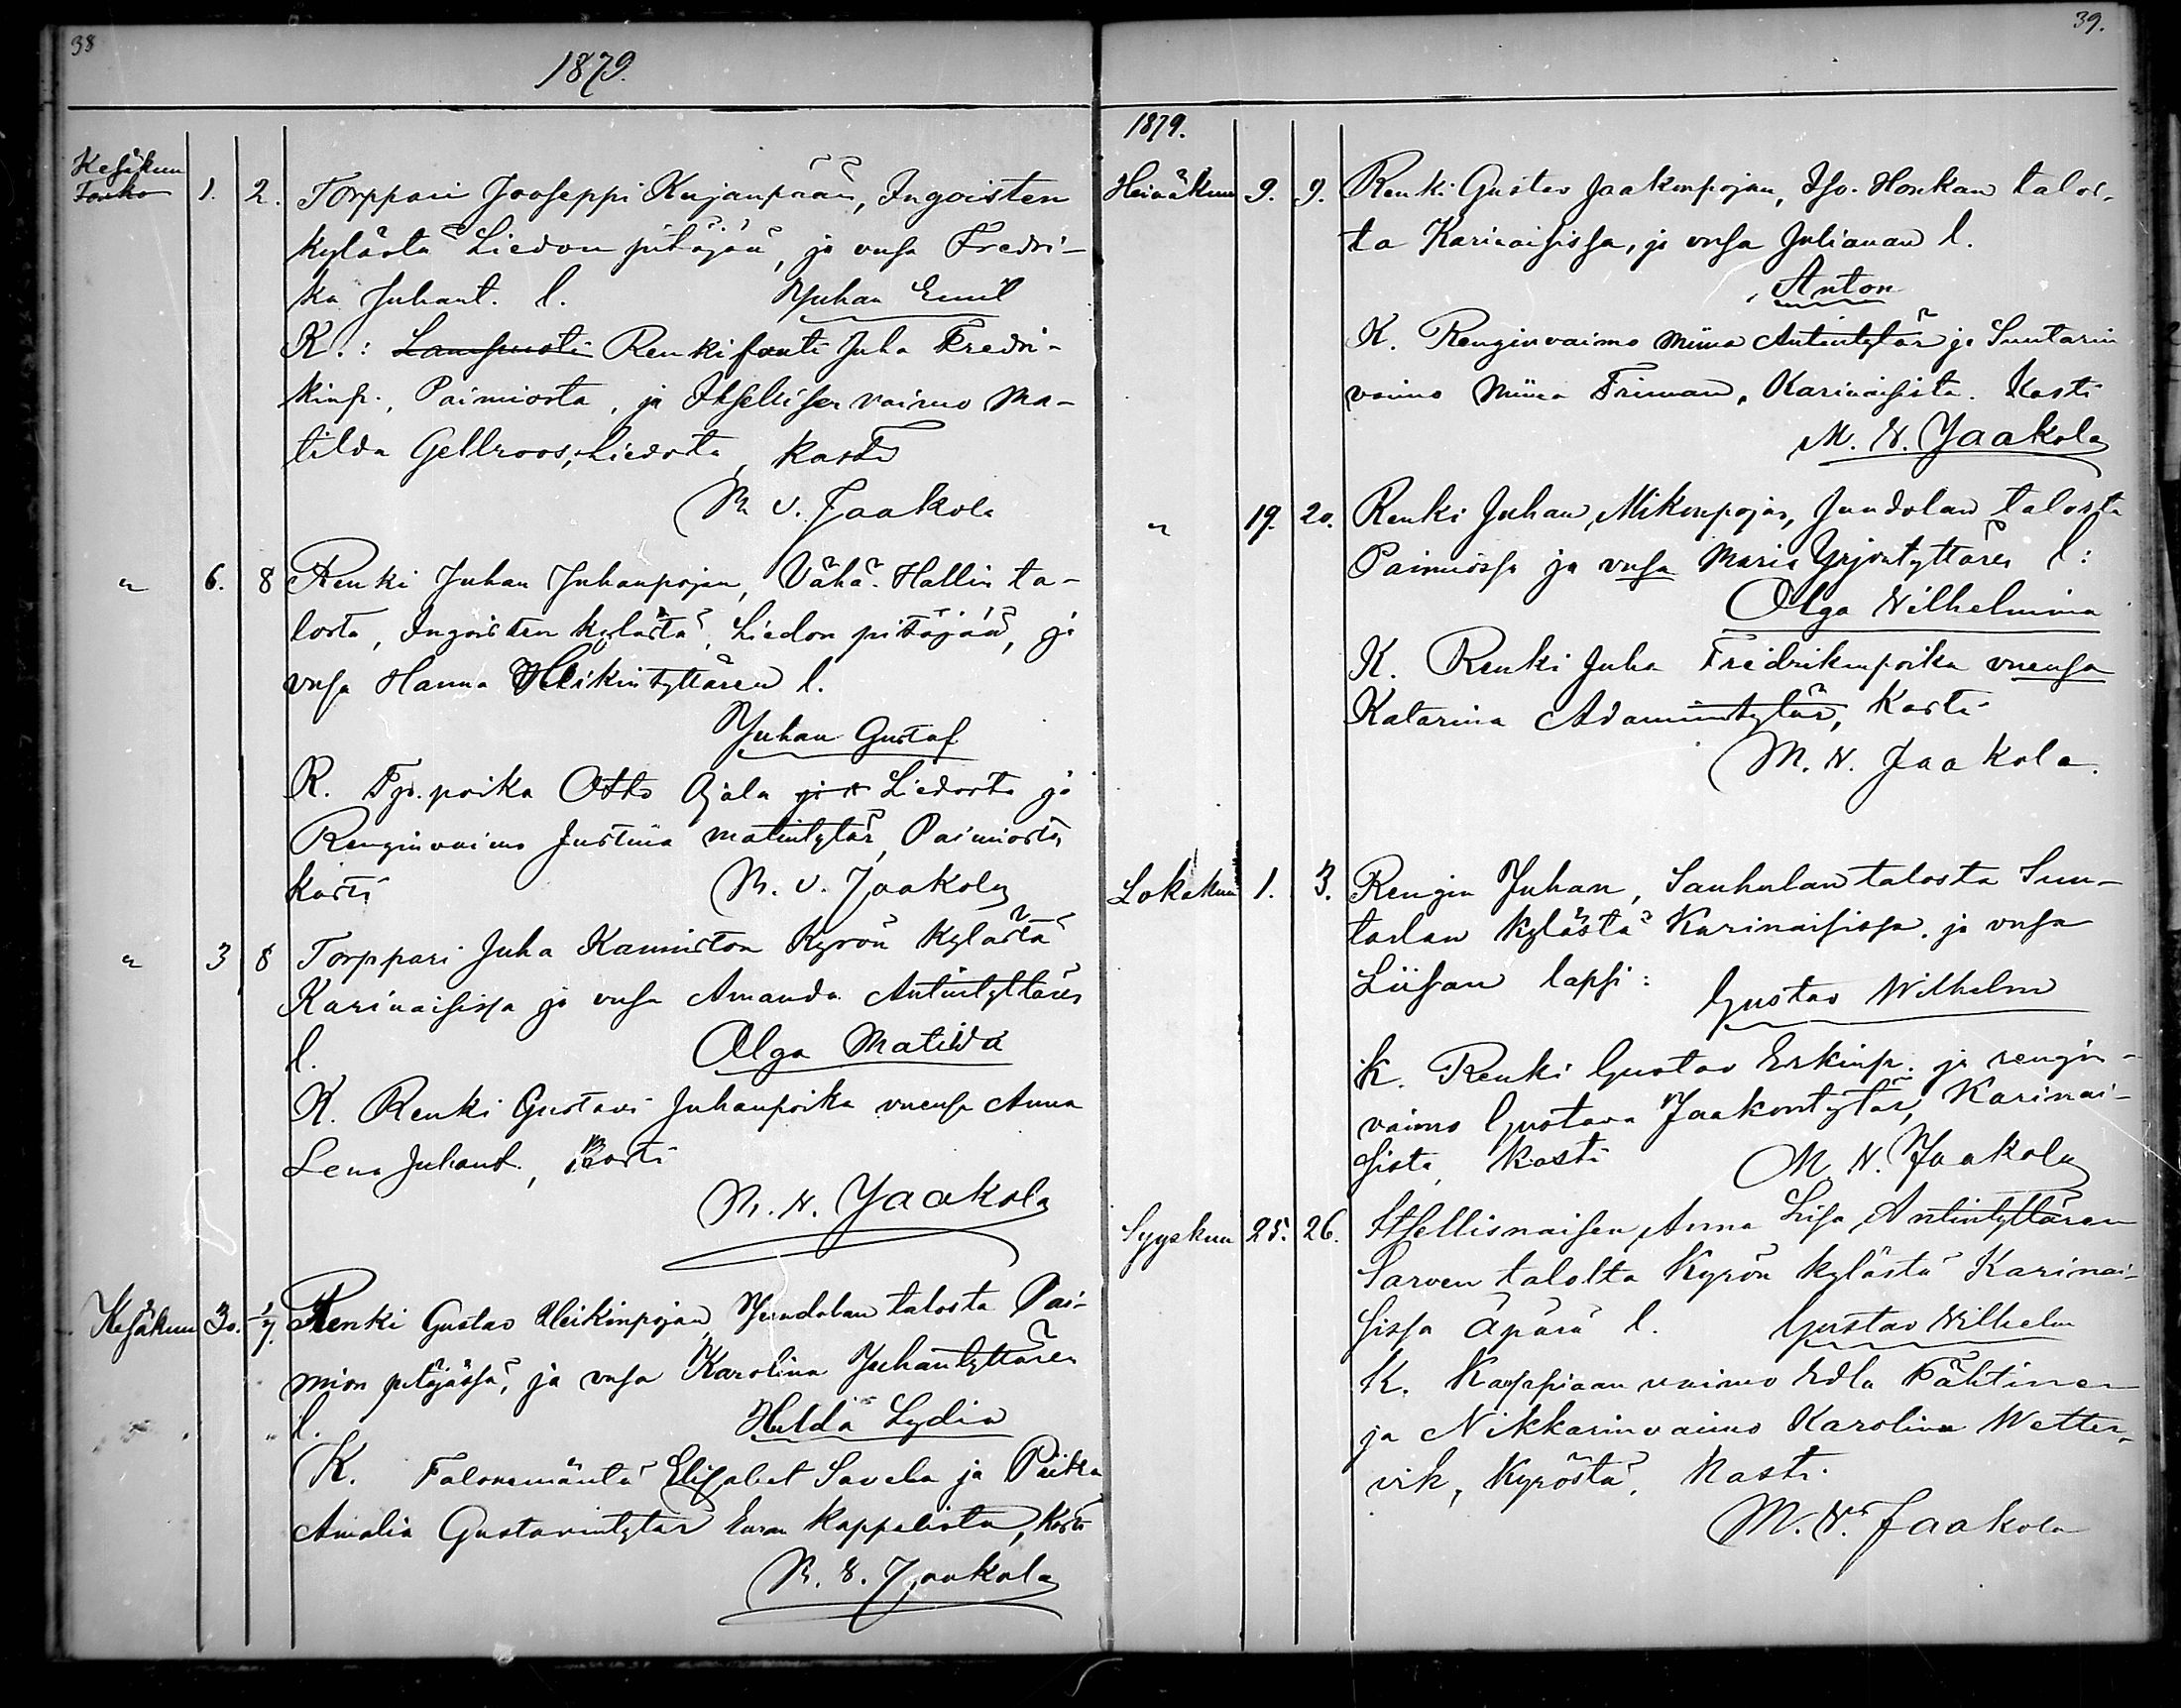 38
1879.
Kesäkuu
Touko 1. 2. Torppari Jooseppi Kujanpään, Ingoisten
kylästä Liedon pitäjää, ja vnsa Fredri-
ka Juhant. l. Juhan Emil
K.: Lampuoti Renki Juha Fredri-
kinp., Paimiosta, ja Itsellisen vaimo Ma-
tilda Gellroos, Liedosta, kasti
M. V. Jaakola
" 6. 8 Renki Juhan Juhanpojan, Vähä-Hallin ta-
losta, Ingoisten kylästä, Liedon pitäjää, ja
vnsa Hanna Heikintyttären l.
Juhan Gustaf
K. Tpr. poika Otto Ojala Liedosta ja
Renginvaimo Justiina Matintytär, Paimiosta
kasti M. V. Jaakola
" 3 8 Torppari Juha Kanniston Kyrön kylästä
Karinaisissa ja vnsa Amanda Antintyttären
l. Olga Matilda
K. Renki Gustavi Juhanpoika vnensa Anna
Lena Juhant., kasti
M. W. Jaakola
Kesäkuu 30. 1/7. Renki Gustav Heikinpojan, Jundolan talosta Pai-
mion pitäjässä, ja vnsa Karolina Juhantyttären
l. Hilda Lydia
K. Talonemäntä Elisabet Savela ja Piika
Amalia Gustavintytär Euran kappelista, kasti
M. W. Jaakola
39.
1879.
Heinäkuu 9. 9. Renki Gustav Jaakonpojan, Iso-Honkan talos-
ta Karinaisissa, ja vnsa Julianan l.
Anton
K. Renginvaimo Miina Antintytär ja Suutarin
vaimo Miina Friman, Karinaisista. Kasti
M. W. Jaakola
" 19. 20. Renki Juhan Mikonpojan, Jundolan talosta
Paimiossa ja vnsa Maria Yrjöntyttären l:
Olga Wilhelmina
K. Renki Juha Fredrikinpoika vnensa
Katarina Adamintytär, Kasti
M. W. Jaakola.
Lokakuu 1. 3. Rengin Juhan, Sauhulan talosta Suu-
rlan kylästä Karinaisissa, ja vnsa
Liisan lapsi: Gustav Wilhelm
K. Renki Gustav Erkinp. ja rengin-
vaimo Gustava Jaakontytär, Karinai-
sista, Kasti M. W. Jaakola
Syyskuu 25. 26. Itsellisnaisen Anna Liisa Antintyttären
Sarven talolta Kyrön kylästä Karinai-
sissa äpärä l. Gustav Wilhelm
K. Kauppiaan vaimo Edla Pähtinen
ja Nikkarinvaimo Karolina Wetter-
vik, Kyröstä, Kasti.
M. W. Jaakola